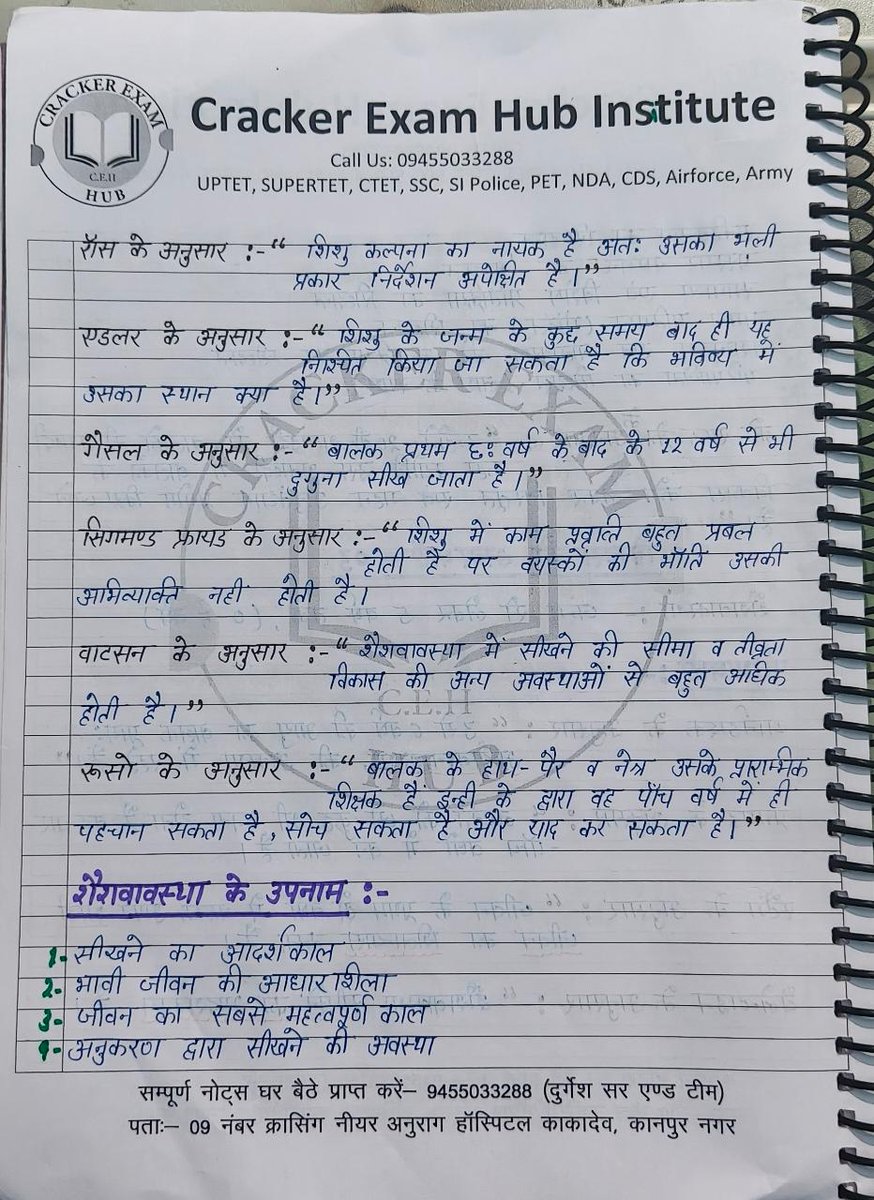 CRACKER EXAM
C.E.H
HUB
Cracker Exam Hub Institute
Call Us: 09455033288
UPTET, SUPERTET, CTET, SSC, SI Police, PET, NDA, CDS, Airforce, Army
रॉस के अनुसार :-“ शिशु कल्पना का नायक है अतः उसका भली
प्रकार निर्देशन अपेक्षित है।”
एडलर के अनुसार :-“ शिशु के जन्म के कुछ समय बाद ही यह
निश्चित किया जा सकता है कि भविष्य में
उसका स्थान क्या है।”
गैसल के अनुसार :-“ बालक प्रथम छः वर्ष के बाद के 12 वर्ष से भी
दुगुना सीख जाता है।”
सिगमण्ड फ्रायड के अनुसार :-“ शिशु में काम प्रवृत्ति बहुत प्रबल
होती है पर वयस्कों की भाँति उसकी
अभिव्यक्ति नहीं होती है।
वाटसन के अनुसार :-“ शैशवावस्था में सीखने की सीमा व तीव्रता
विकास की अन्य अवस्थाओं से बहुत अधिक
होती है।”
रूसो के अनुसार :-“ बालक के हाथ-पैर व नेत्र उसके प्रारम्भिक
शिक्षक हैं इन्ही के द्वारा वह पाँच वर्ष में ही
पहचान सकता है, सोच सकता है और याद कर सकता है।”
शैशवावस्था के उपनाम :-
1- सीखने का आदर्श काल
2- भावी जीवन की आधारशिला
3- जीवन का सबसे महत्वपूर्ण काल
4- अनुकरण द्वारा सीखने की अवस्था
सम्पूर्ण नोट्स घर बैठे प्राप्त करें– 9455033288 (दुर्गेश सर एण्ड टीम)
पताः– 09 नंबर क्रासिंग नीयर अनुराग हॉस्पिटल काकादेव, कानपुर नगर
CRACKER EXAM
C.E.H
HUB